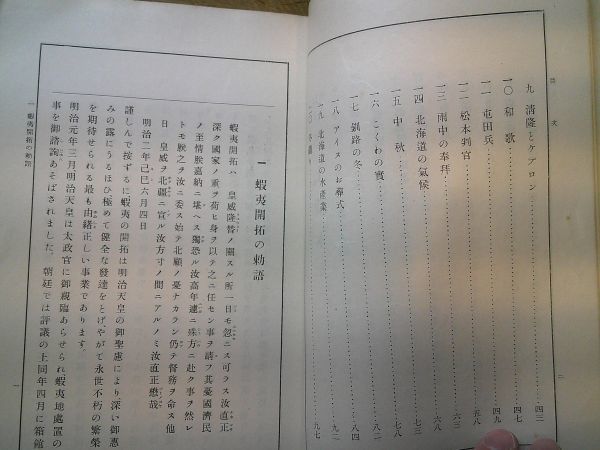 目次
九 清隆とケプロン……四三
一〇 和歌……四七
一一 屯田兵……四九
一二 松本判官……五八
一三 雨中の奉拜……六三
一四 北海道の氣候……六八
一五 中秋……七八
一六 こくわの實……八一
一七 釧路の冬……八四
一八 アイヌのお葬式……九二
一九 北海道の水産業……九七
二
一 蝦夷開拓の勅語
蝦夷開拓ハ 皇威隆替ノ關スル所一日モ忽ニス可ラス汝直正
深ク國家ノ重ヲ荷ヒ身ヲ以テ之ニ任セン事ヲ請フ其憂國濟民
ノ至情朕嘉納ニ堪ヘス獨恐ル汝高年遽ニ殊方ニ赴ク事ヲ然レ
トモ朕之ヲ汝ニ委ス始テ北顧ノ憂ナカラン仍テ督務ヲ命ス他
日 皇威ヲ北疆ニ宣ル汝方寸ノ間ニアルノミ汝直正懋哉
明治二年己巳六月四日
謹しんで按ずるに蝦夷の開拓は明治天皇の御聖慮により深い御惠
みの露にうるほひ極めて健全な發達をとげやがて永世不朽の繁榮
を期待せられる最も由緒正しい事業であります。
明治元年三月明治天皇は太政官に御親臨あらせられ蝦夷地處置の
事を御諮詢あそばされました。朝廷では評議の上同年四月に箱館
一 蝦夷開拓の勅語
一